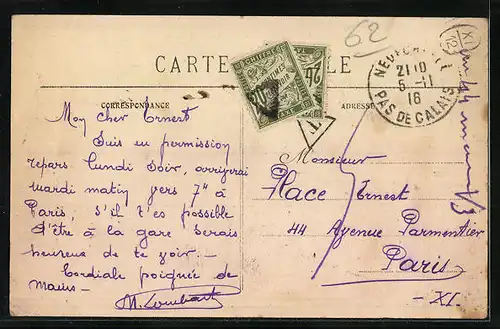 62
CARTE POSTALE
CORRESPONDANCE
ADRESSE
XI
12
21 10
5 - 11
16
PAS DE CALAIS
T
Mon cher Ernest
Suis en permission
repars lundi soir, arriverai
mardi matin vers 7h à
Paris, s'il t'es possible
d'être à la gare serais
heureux de te voir. —
Cordiale poignée de
mains —
M. Lombart
Monsieur
Place Ernest
44 Avenue Parmentier
Paris
- XI.